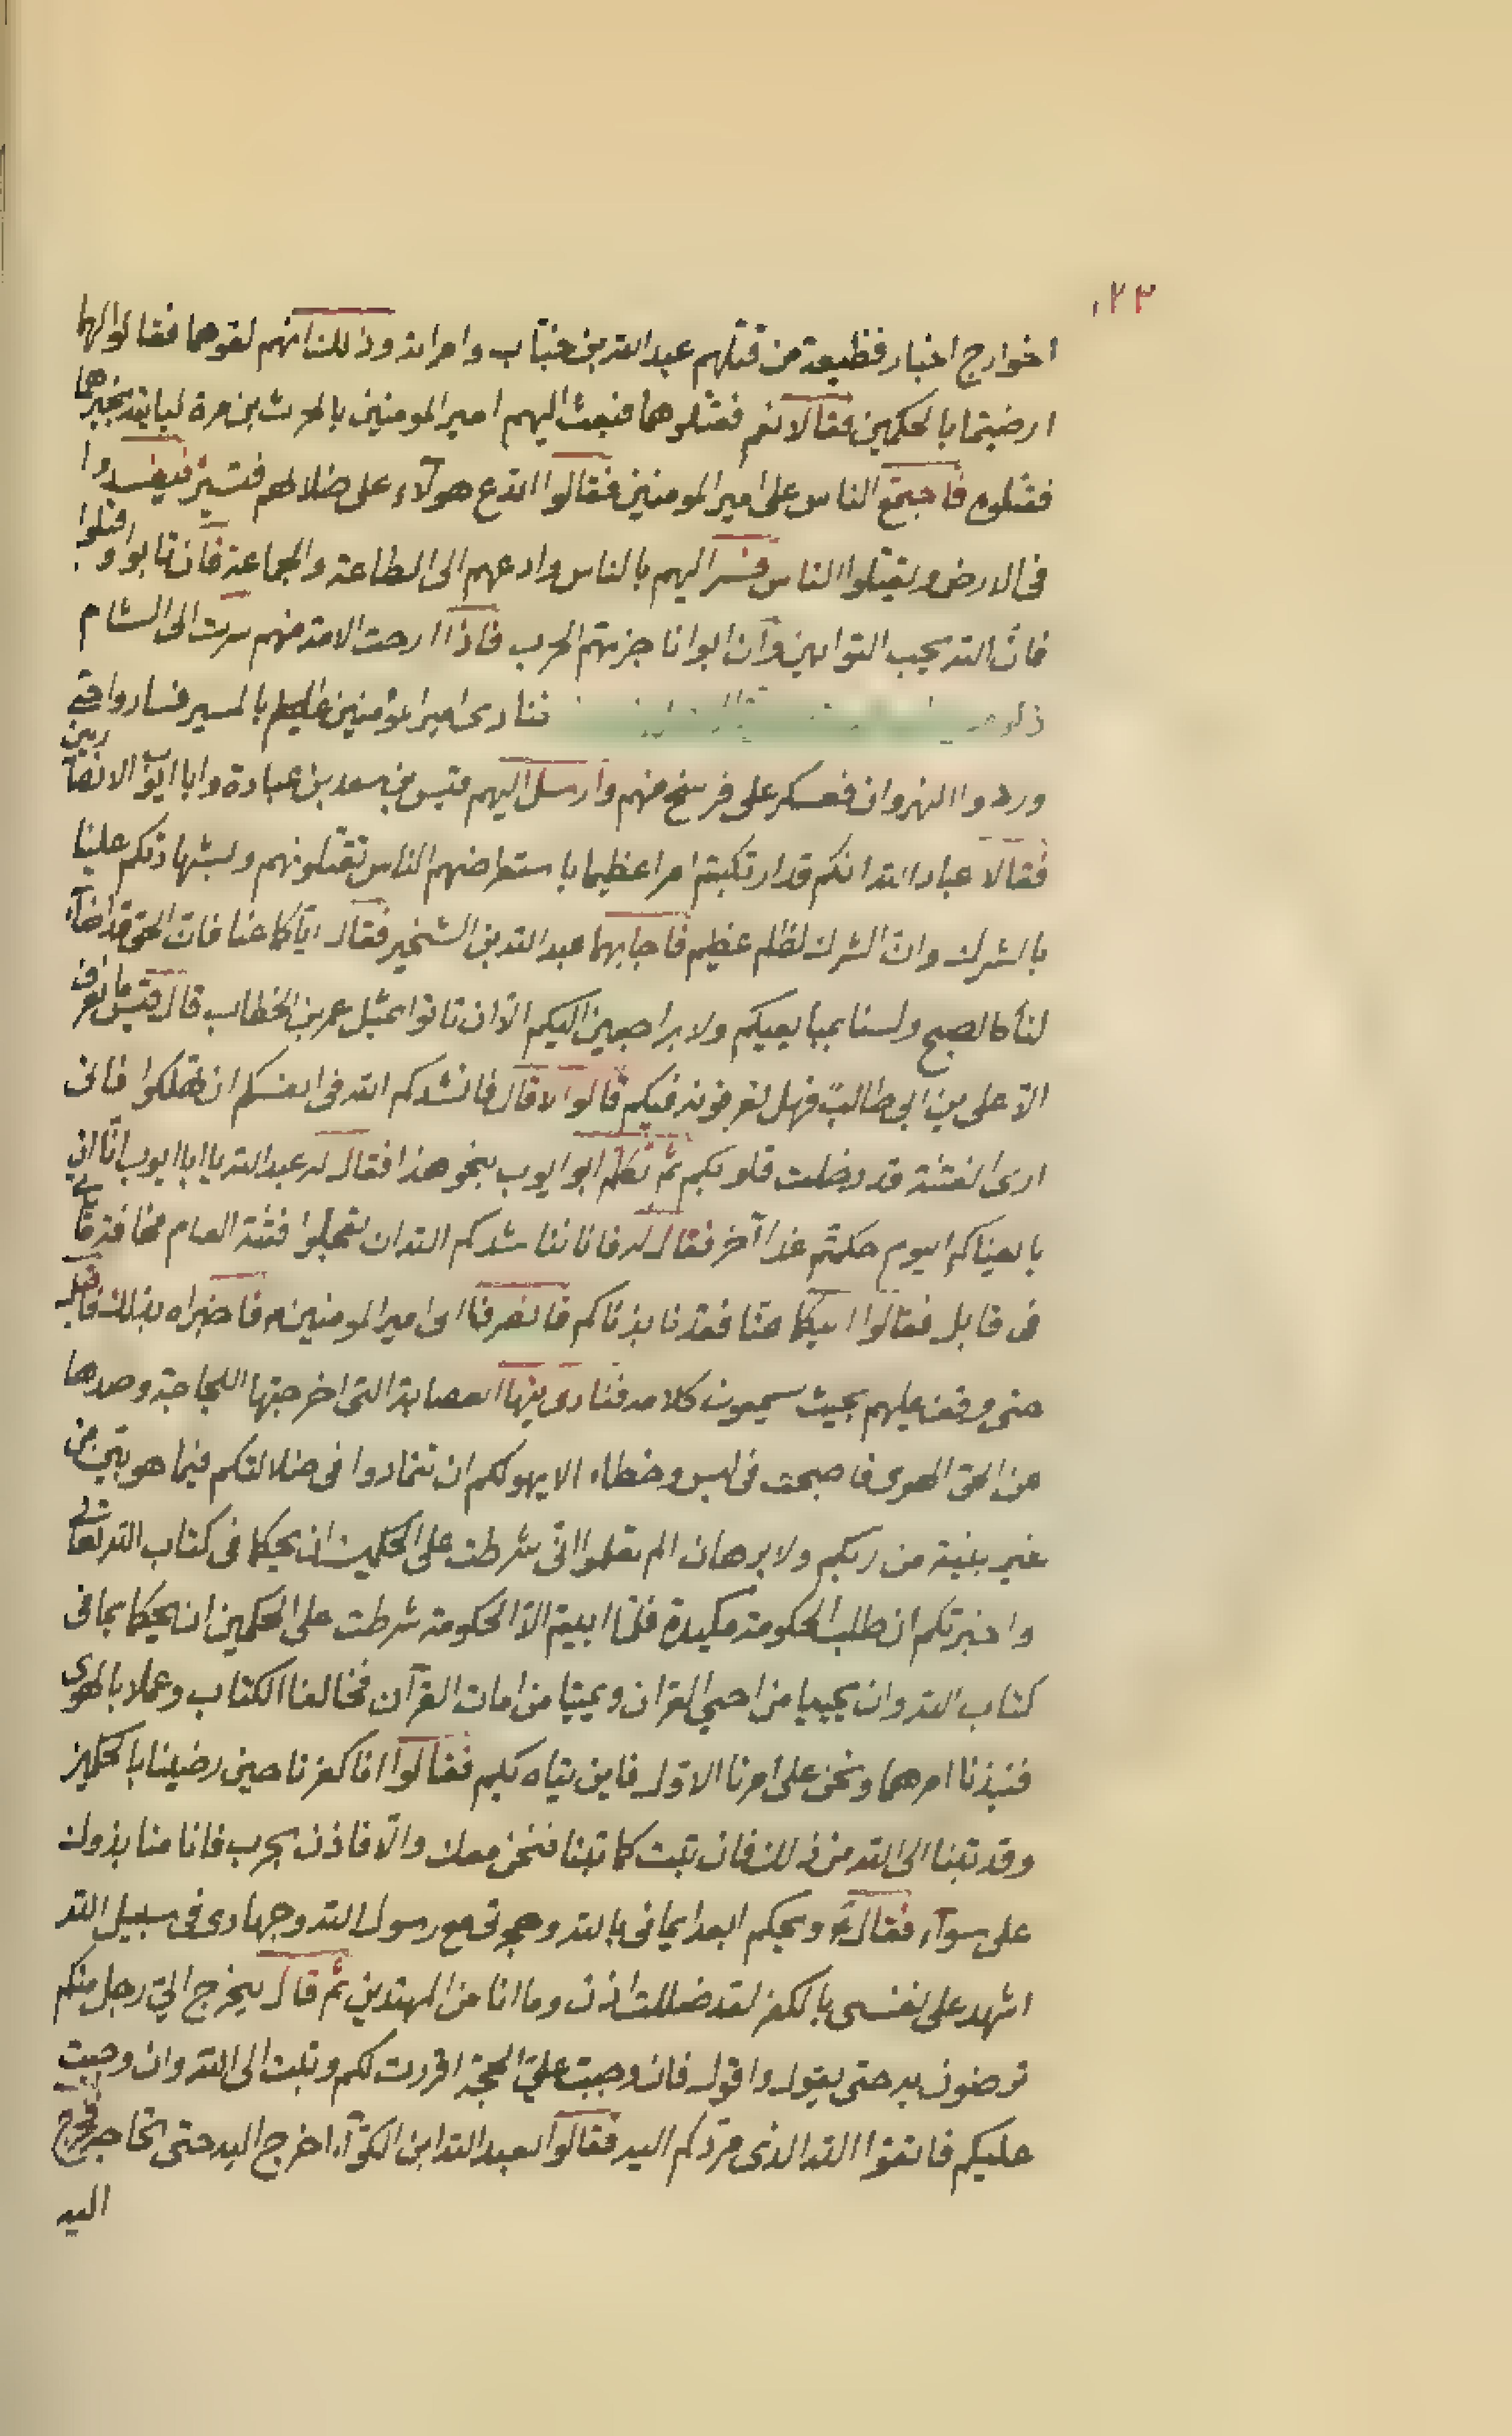 ٢٣
الخوارج اخبار فظيعة من قتلهم عبد الله بن خباب وامراته وذلك انهم لقوهما فقالوا لهما
ارضيتما بالحكمين فقالا نعم فقتلوهما فبعث اليهم امير المومنين بالحرث بن مرة لياتيه بخبرهما
فقتلوه فاجتمع الناس على امير المومنين فقالوا اندع هولآء على ضلالهم فتسير فيفسدوا
فى الارض ويقتلوا الناس فسر اليهم بالناس وادعهم الى الطاعة والجماعة فان تابوا وقبلوا
فان الله يحب التوابين وان ابوا ناجزتهم الحرب فاذا ارحت الامة منهم سرت الى الشام
فنادى امير المؤمنين عليكم بالمسير فساروا حتى
وردوا النهروان فعسكر على فرسخ منهم وارسل اليهم قيس بن سعد بن عبادة وابا ايوب الانصارى
فقالا عباد الله انكم قد ارتكبتم امرا عظيما باستعراضهم الناس تقتلونهم وبشهادتكم علينا
بالشرك وان الشرك لظلم عظيم فاجابهما عبد الله بن الشخير فقال اياكما عنا فان الحق قد اضآء
لنا كالصبح ولسنا بمبايعيكم ولا براجعين اليكم الا ان تاتوا بمثل عمر بن الخطاب قال قيس ما نعرف
الا على بن ابى طالب فهل تعرفونه فيكم قالوا لا قال فانشدكم الله فى انفسكم ان تهلكوا فانى
ارى الفتنة قد دخلت قلوبكم ثم تكلم ابو ايوب بنحو هذا فقال له عبد الله يا ابا ايوب انا ان
بايعناكم اليوم حكمتم غدا آخر فقال له فانا نناشدكم الله ان تعجلوا فتنة العام مخافة ما ياتى
فى قابل فقالوا اليكما عنا فقد نابذناكم فانصرفا الى امير المومنين فاخبراه بذلك فاقبل
حتى وقف عليهم بحيث يسمعون كلامه فنادى ايتها العصابة التى اخرجتها اللجاجة وصدها
عن الحق الهوى فاصبحت فى لبس وخطاء الا يهولكم ان تتمادوا فى ضلالتكم فيما هو بتى من
غير بينة من ربكم ولا برهان الم تعلموا انى شرطت على الحكمين ان يحكما فى كتاب الله تعالى
واخبرتكم ان طلب الحكومة مكيدة فلما ابيتم الا الحكومة شرطت على الحكمين ان يحكما بما فى
كتاب الله وان يحييا من احيى القران ويميتا من امات القرآن فخالفا الكتاب وعملا بالهوى
فنبذنا امرهما ونحن على امرنا الاول فاين يتاه بكم فقالوا انا كفرنا حين رضينا بالحكمين
وقد تبنا الى الله من ذلك فان تبت كما تبنا فنحن معك والا فاذن بحرب فانا منابذوك
على سوآء فقال ويحكم ابعد ايمانى بالله وهجرتى مع رسول الله وجهادى فى سبيل الله
اشهد على نفسى بالكفر لقد ضللت اذن وما انا من المهتدين ثم قال ليخرج الى رجل منكم
ترضون به حتى يقول واقول فان وجبت على الحجة اقررت لكم وتبت الى الله وان وجبت
عليكم فاتقوا الله الذى مردكم اليه فقالوا لعبد الله ابن الكوآء اخرج اليه حتى تحاجه فخرج
اليه